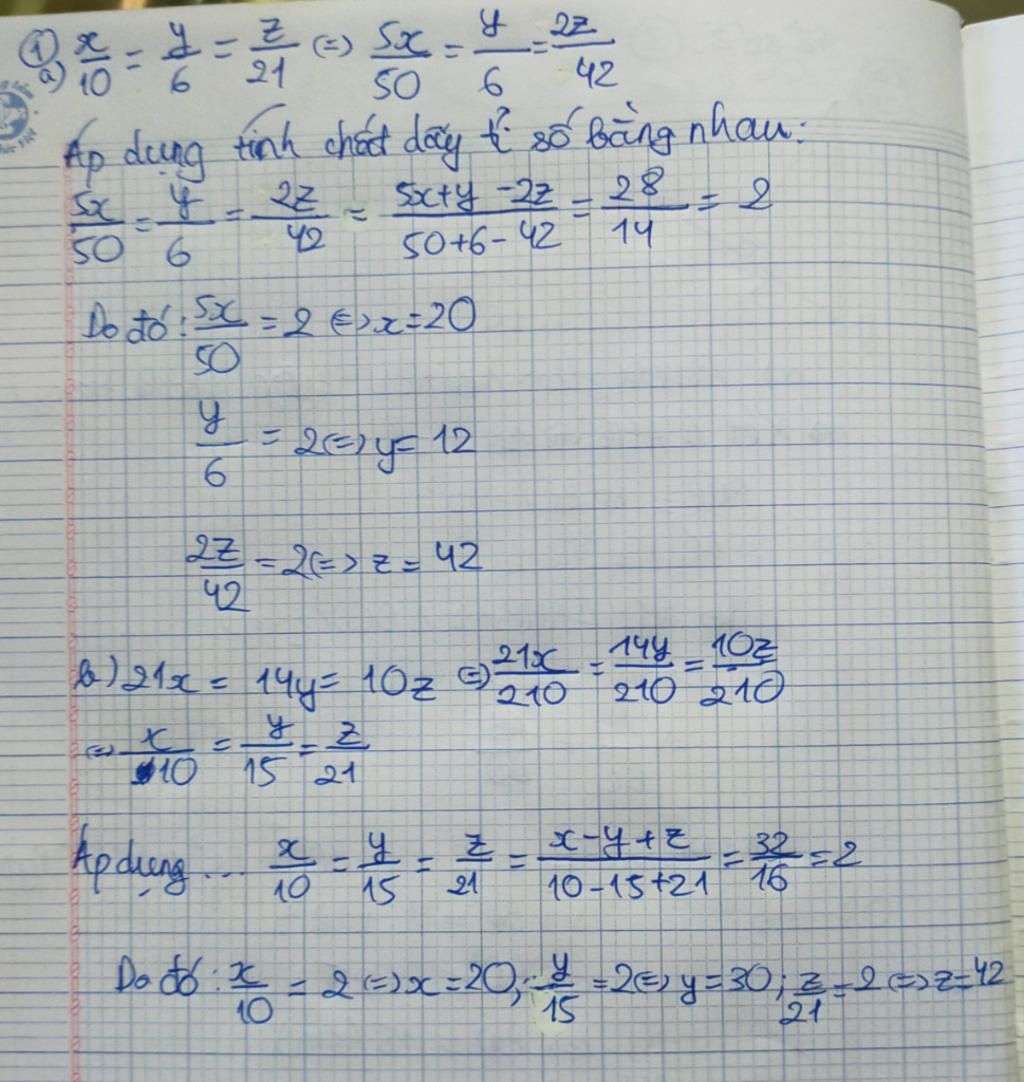 ① a) x/10 = y/6 = z/21 (=) 5x/50 = y/6 = 2z/42
Áp dụng tính chất dãy tỉ số bằng nhau:
5x/50 = y/6 = 2z/42 = (5x+y-2z)/(50+6-42) = 28/14 = 2
Do đó: 5x/50 = 2 (=) x=20
y/6 = 2 (=) y= 12
2z/42 = 2 (=) z = 42
b) 21x = 14y = 10z (=) 21x/210 = 14y/210 = 10z/210
(=) x/10 = y/15 = z/21
Áp dụng... x/10 = y/15 = z/21 = (x-y+z)/(10-15+21) = 32/16 = 2
Do đó: x/10 = 2 (=) x=20; y/15 = 2 (=) y=30; z/21 = 2 (=) z=42